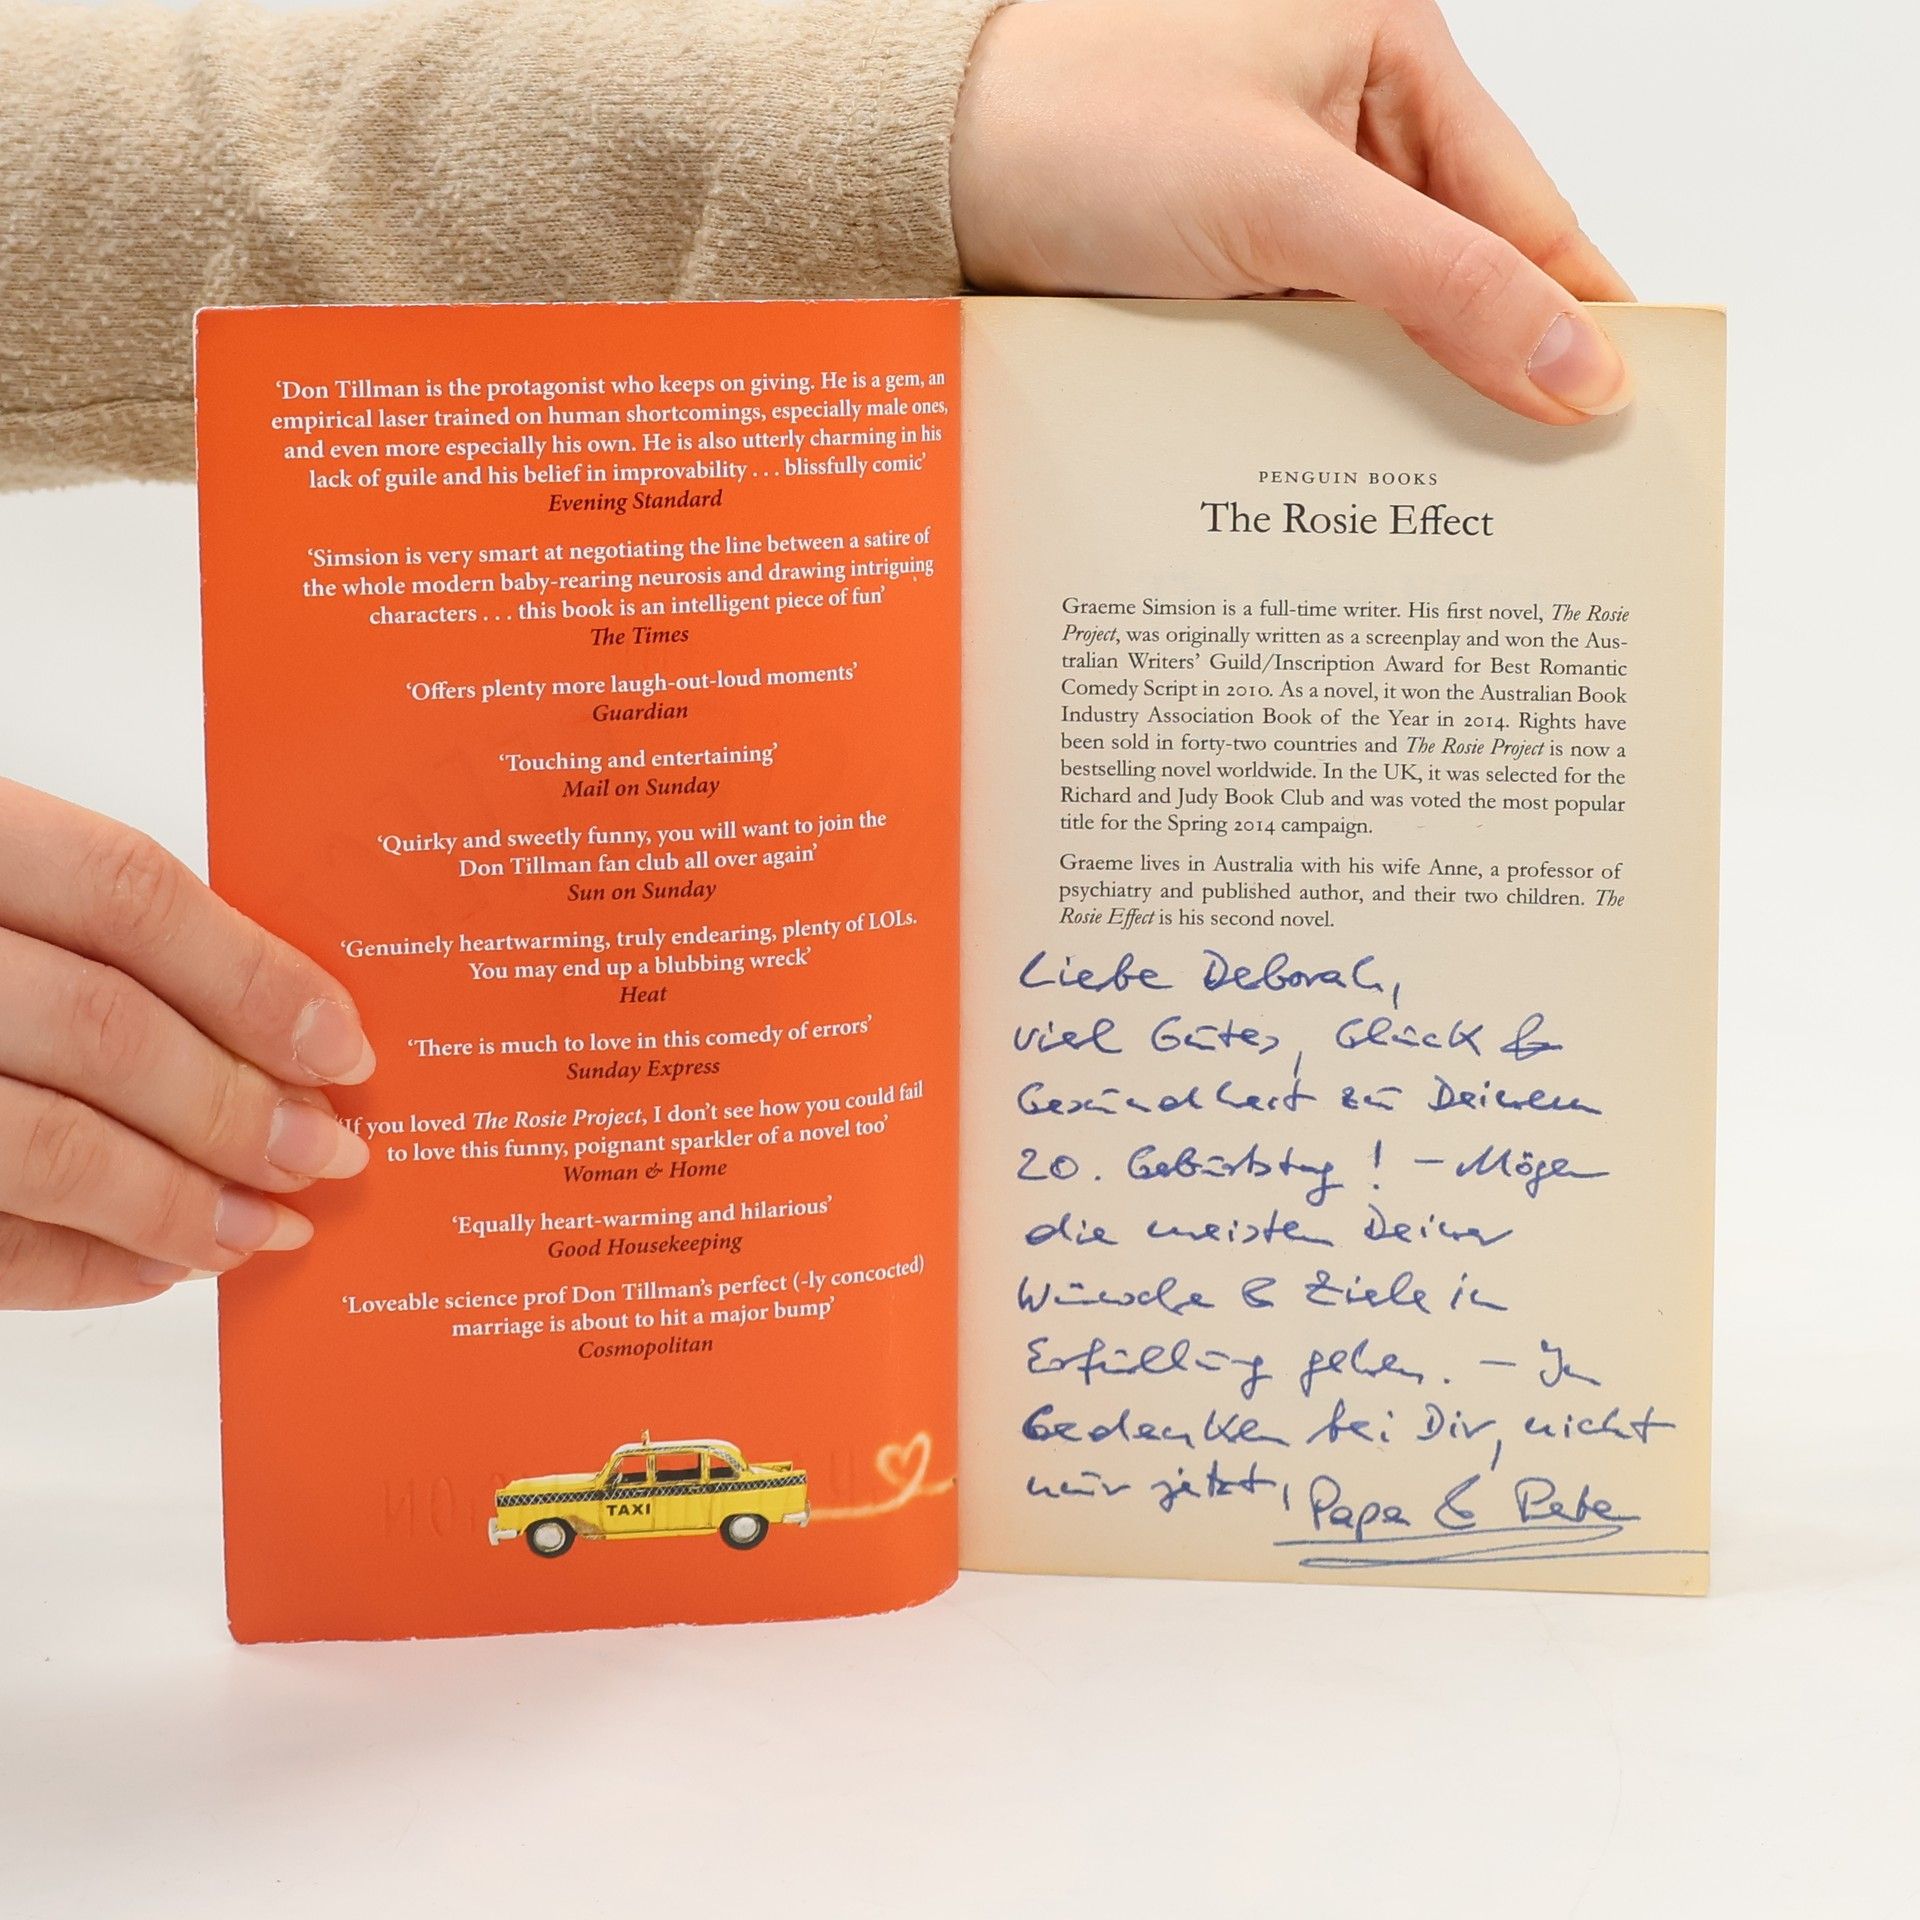 ‘Don Tillman is the protagonist who keeps on giving. He is a gem, an
empirical laser trained on human shortcomings, especially male ones,
and even more especially his own. He is also utterly charming in his
lack of guile and his belief in improvability . . . blissfully comic’
Evening Standard
‘Simsion is very smart at negotiating the line between a satire of
the whole modern baby-rearing neurosis and drawing intriguing
characters . . . this book is an intelligent piece of fun’
The Times
‘Offers plenty more laugh-out-loud moments’
Guardian
‘Touching and entertaining’
Mail on Sunday
‘Quirky and sweetly funny, you will want to join the
Don Tillman fan club all over again’
Sun on Sunday
‘Genuinely heartwarming, truly endearing, plenty of LOLs.
You may end up a blubbing wreck’
Heat
‘There is much to love in this comedy of errors’
Sunday Express
‘If you loved The Rosie Project, I don’t see how you could fail
to love this funny, poignant sparkler of a novel too’
Woman & Home
‘Equally heart-warming and hilarious’
Good Housekeeping
‘Loveable science prof Don Tillman’s perfect (-ly concocted)
marriage is about to hit a major bump’
Cosmopolitan
TAXI
PENGUIN BOOKS
The Rosie Effect
Graeme Simsion is a full-time writer. His first novel, The Rosie
Project, was originally written as a screenplay and won the Aus-
tralian Writers’ Guild/Inscription Award for Best Romantic
Comedy Script in 2010. As a novel, it won the Australian Book
Industry Association Book of the Year in 2014. Rights have
been sold in forty-two countries and The Rosie Project is now a
bestselling novel worldwide. In the UK, it was selected for the
Richard and Judy Book Club and was voted the most popular
title for the Spring 2014 campaign.
Graeme lives in Australia with his wife Anne, a professor of
psychiatry and published author, and their two children. The
Rosie Effect is his second novel.
Liebe Deborah,
viel Gutes, Glück &
Gesundheit zu Deinem
20. Geburtstag! – Mögen
die meisten Deiner
Wünsche & Ziele in
Erfüllung gehen. – In
Gedenken bei Dir, nicht
nur jetzt, Papa &